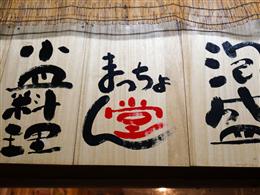 泡盛
まっちょん堂
小皿料理